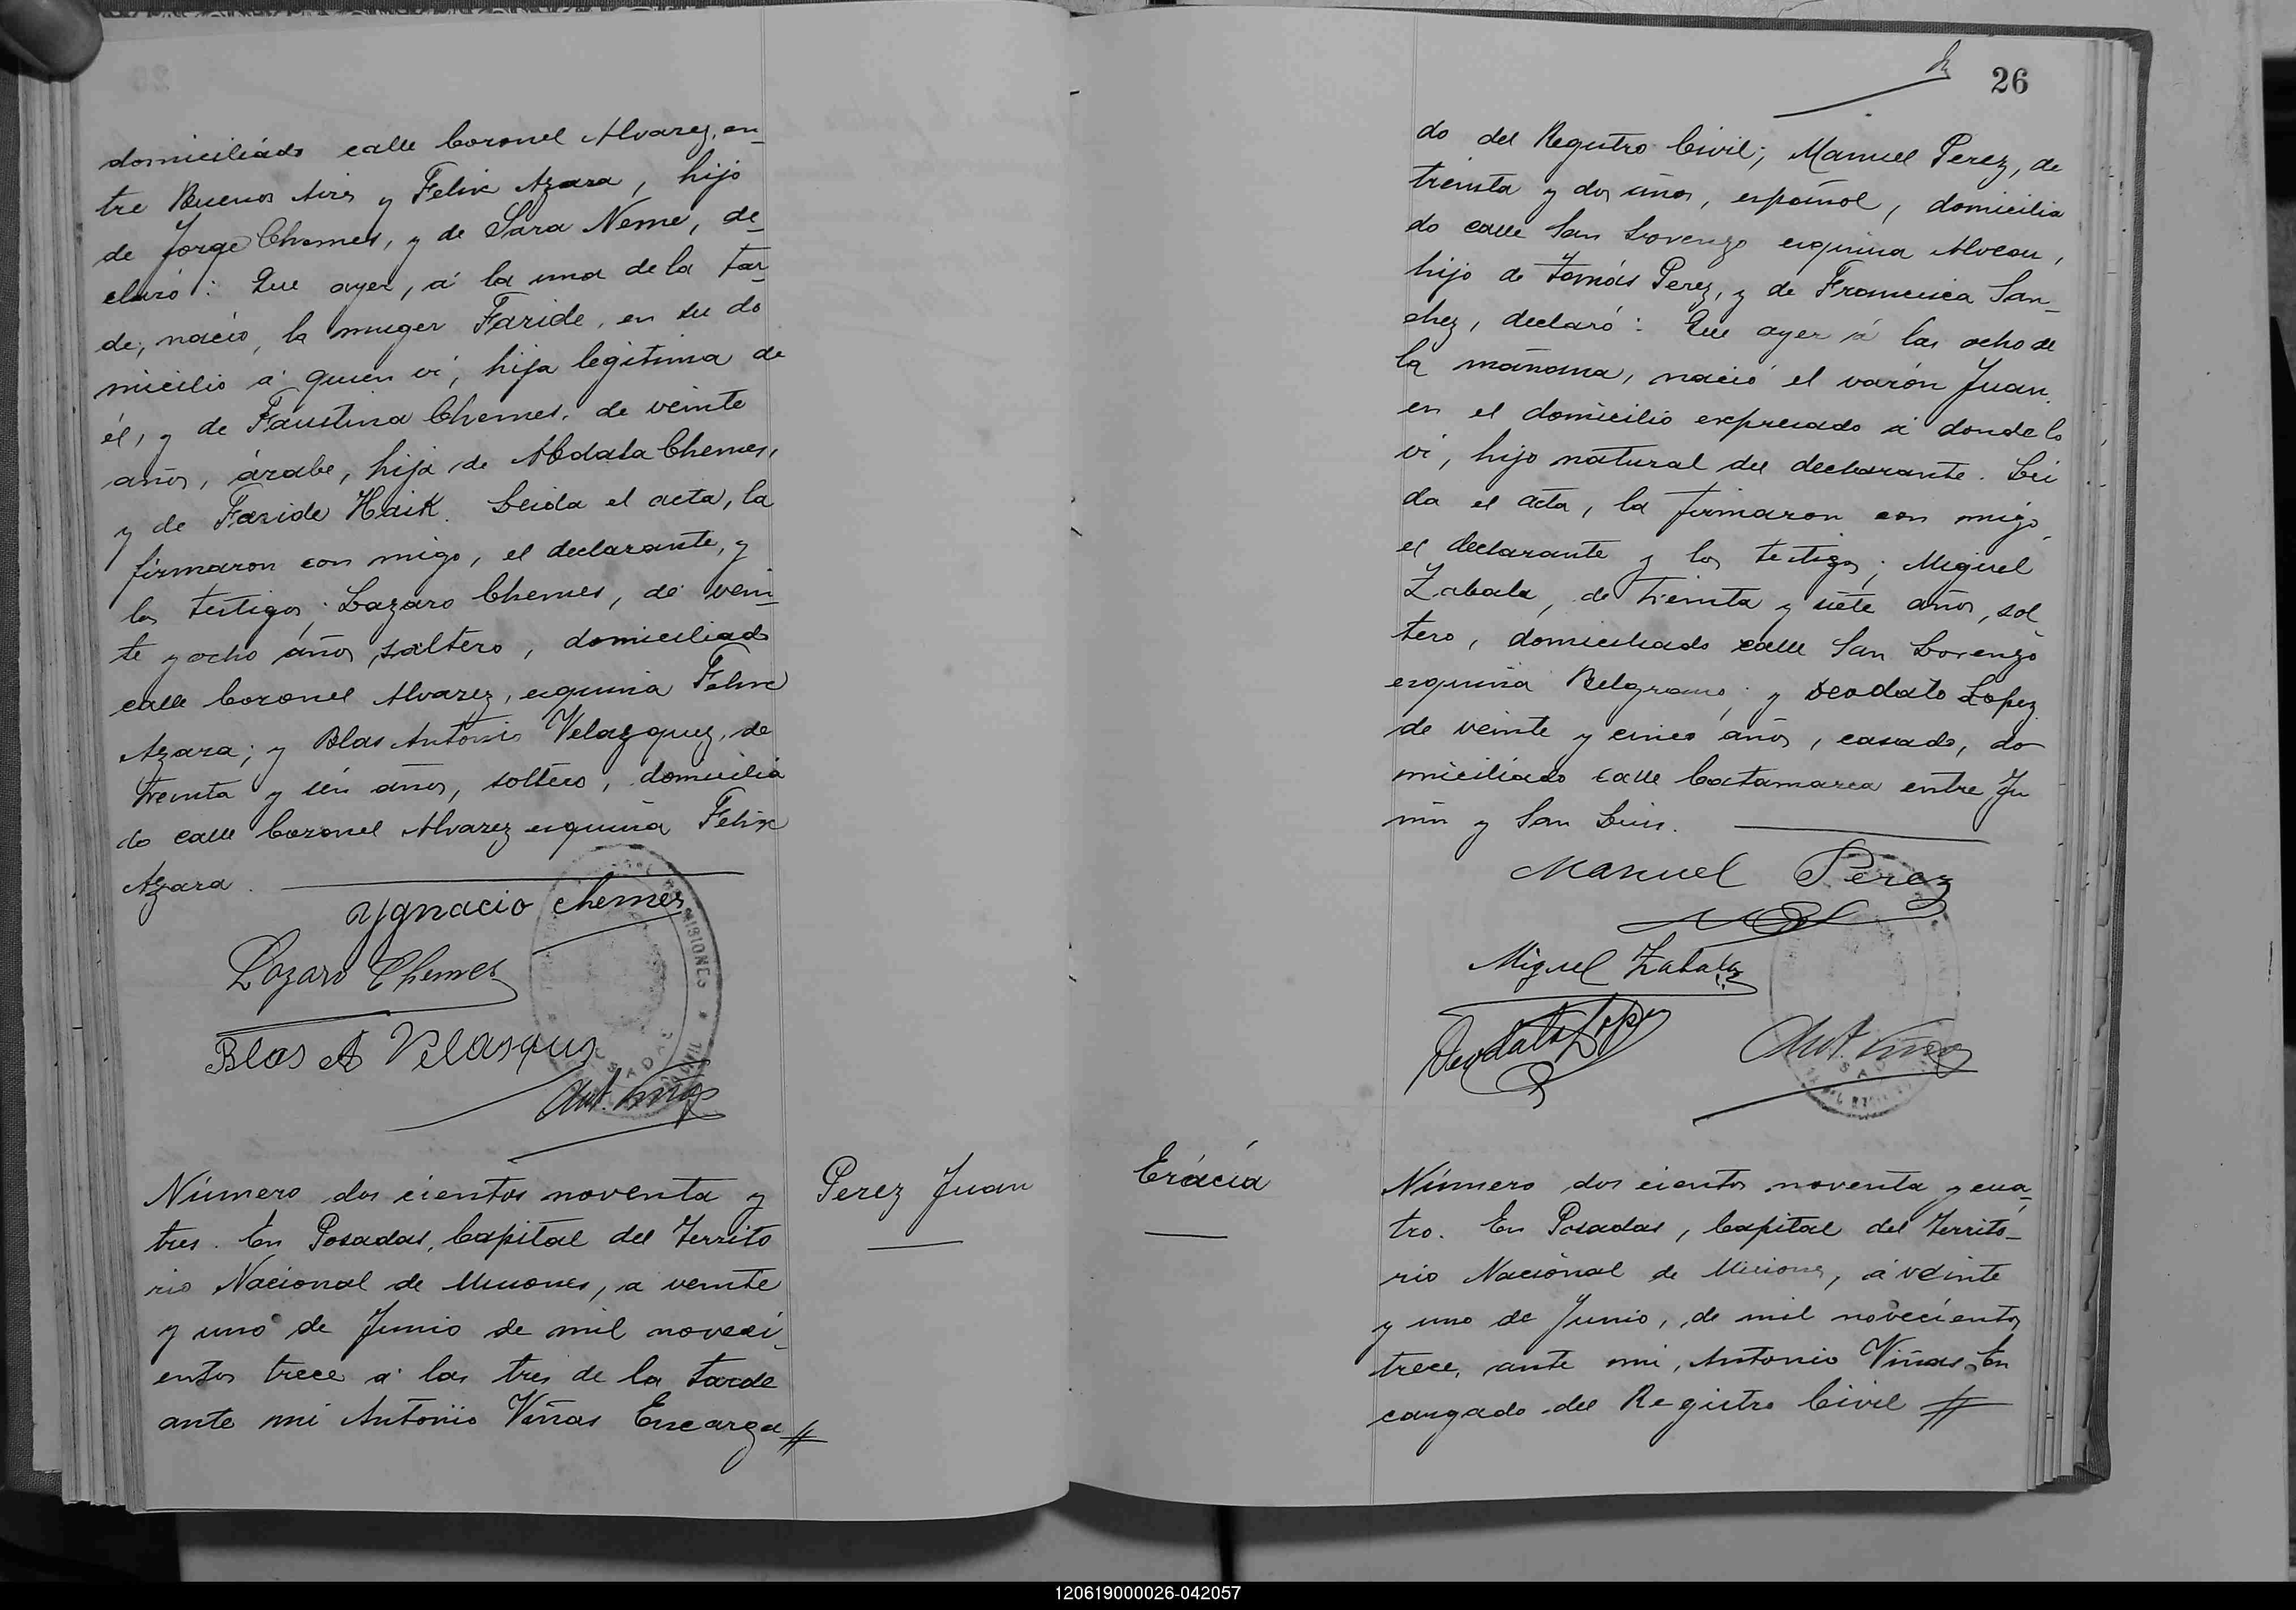 domiciliado calle Coronel Alvarez, en-
tre Buenos Aires y Felix Azara, hijo
de Jorge Chemes, y de Sara Neme, de-
claró: Que ayer, á la una de la tar-
de, nació, la muger Faride, en su do
micilio á quien ví, hija legítima de
él, y de Faustina Chemes, de veinte
años, árabe, hija de Abdala Chemes,
y de Faride Haik. Leida el acta, la
firmaron con migo, el declarante, y
los testigos; Lazaro Chemes, de vein-
te y ocho años, soltero, domiciliado
calle Coronel Alvarez, esquina Felix
Azara; y Blas Antonio Velazquez, de
treinta y séis años, soltero, domicilia
do calle Coronel Alvarez esquina Felix
Azara.
Ygnacio Chemes
Lazaro Chemes
Blas A Velasques
Ant. Viñas
Número dos cientos noventa y
tres. En Posadas, Capital del Territo
rio Nacional de Misiones, a veinte
y uno de Junio de mil noveci-
entos trece á las tres de la tarde
ante mi Antonio Viñas Encarga #
Perez Juan
26
do del Registro Civil; Manuel Perez, de
treinta y dos años, español, domicilia
do calle San Lorenzo esquina Alvear,
hijo de Tomás Perez, y de Francisca San-
chez, declaró: Que ayer á las ocho de
la mañana, nació el varón Juan,
en el domicilio expresado á donde lo
ví, hijo natural del declarante. Lei
da el acta, la firmaron con migo,
el declarante y los testigos; Miguel
Zabala, de treinta y siete años, sol
tero, domiciliado calle San Lorenzo
esquina Belgrano; y Deodato Lopez
de veinte y cinco años, casado, do
miciliado calle Catamarca entre Ju
nin y San Luis.
Manuel Perez
Miguel Zabala
Deodato Lopez
Ant. Viñas
Erácia
Número dos cientos noventa y cua-
tro. En Posadas, Capital del Territo-
rio Nacional de Misiones, á veinte
y uno de Junio, de mil novecientos
trece, ante mi, Antonio Viñas En
cargado del Registro Civil #
120619000026-042057